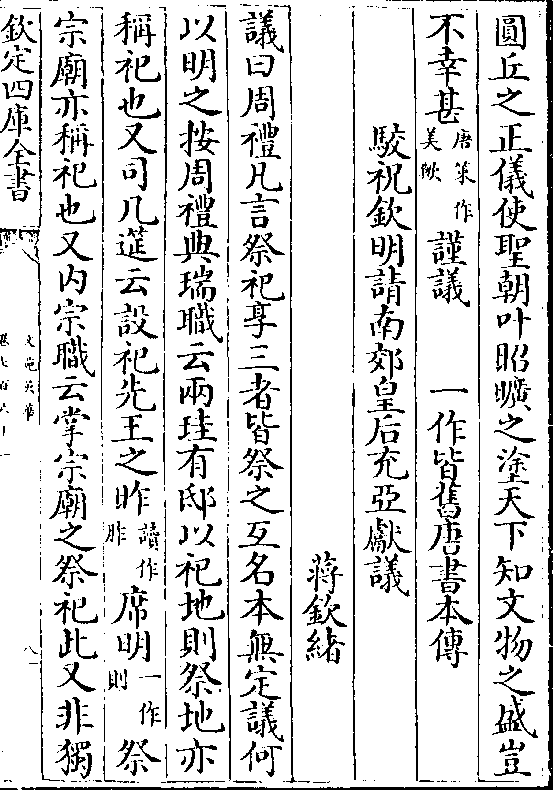 圓丘之正儀使聖朝叶昭曠之塗天下知文物之盛豈
不幸甚唐策作美歟謹議 一作皆舊唐書本傳
駮祝欽明請南郊皇后充亞獻議
蔣欽緒
議曰周禮凡言祭祀享三者皆祭之互名本無定議何
以明之按周禮典瑞職云兩珪有邸以祀地則祭地亦
稱祀也又司几筵云設祀先王之昨讀作胙席明一作則祭
宗廟亦稱祀也又内宗職云掌宗廟之祭祀此又非獨
欽定四庫全書
文苑英華